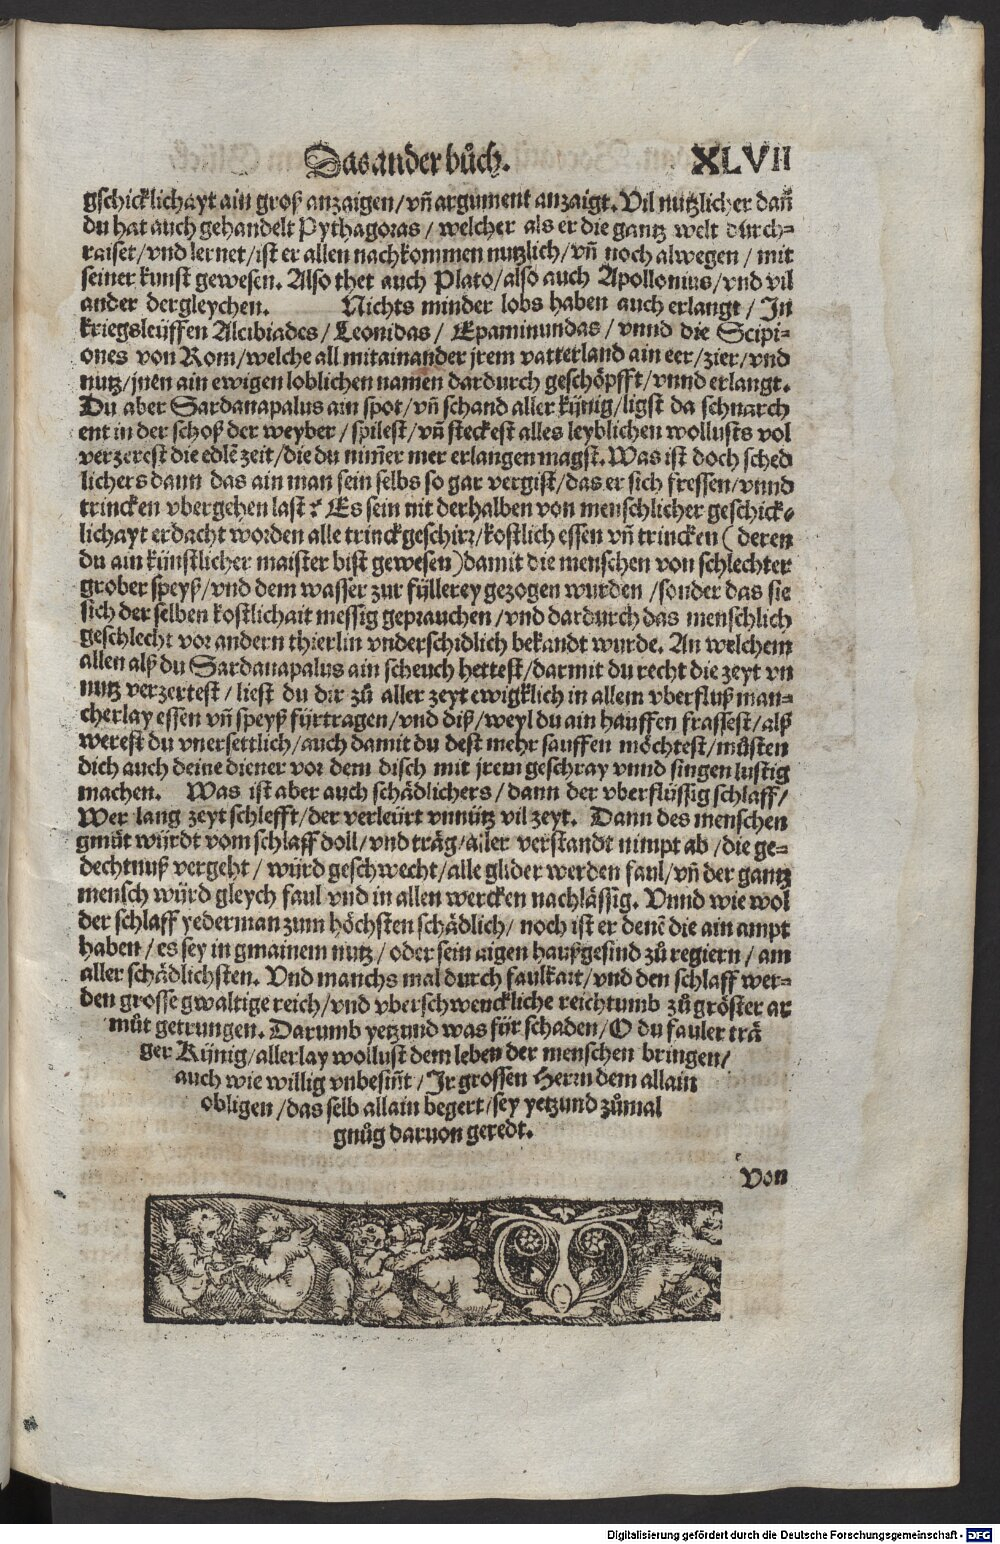 Das ander bůch. XLVII
gschicklichayt ain groß anzaigen/vñ argument anzaigt. Vil nutzlicher dañ
du hat auch gehandelt Pythagoras / welcher als er die gantz welt durch-
raiset/vnd lernet/ist er allen nachkommen nutzlich/vñ noch alwegen / mit
seiner kunst gewesen. Also thet auch Plato/also auch Apollonius/vnd vil
ander dergleychen. Nichts minder lobs haben auch erlangt / In
kriegsleüffen Alcibiades/ Leonidas/ Epaminundas/ vnnd die Scipi-
ones von Rom/welche all mitainander jrem vatterland ain eer/zier/vnd
nutz/jnen ain ewigen loblichen namen dardurch geschöpfft/vnnd erlangt.
Du aber Sardanapalus ain spot/vñ schand aller künig/ligst da schnarch
ent in der schoß der weyber/spilest/vñ steckest alles leyblichen wollusts vol
verzerest die edlē zeit/die du nim̄er mer erlangen magst. Was ist doch sched
lichers dann das ain man sein selbs so gar vergist/das er sich fressen/vnnd
trincken vbergehen last? Es sein nit derhalben von menschlicher geschick-
lichayt erdacht worden alle trinckgeschirr/kostlich essen vñ trincken (deren
du ain künstlicher maister bist gewesen) damit die menschen von schlechter
grober speyß/vnd dem wasser zur füllerey gezogen wurden/sonder das sie
sich der selben kostlichait messig geprauchen/vnd dardurch das menschlich
geschlecht vor andern thierlin vnderschidlich bekandt wurde. An welchem
allen alß du Sardanapalus ain scheuch hettest/darmit du recht die zeyt vn
nutz verzertest/ liest du dir zů aller zeyt ewigklich in allem vberfluß man-
cherlay essen vñ speyß fürtragen/vnd diß/weyl du ain hauffen frassest/alß
werest du vnersettlich/auch damit du dest mehr sauffen möchtest/můsten
dich auch deine diener vor dem disch mit jrem geschray vnnd singen lustig
machen. Was ist aber auch schädlichers/ dann der vberflüssig schlaff/
Wer lang zeyt schlefft/der verleürt vnnütz vil zeyt. Dann des menschen
gmüt würdt vom schlaff doll/vnd träg/aller verstandt nimpt ab/die ge-
dechtnuß vergeht/ würd geschwecht/alle glider werden faul/vñ der gantz
mensch würd gleych faul vnd in allen wercken nachlässig. Vnnd wie wol
der schlaff yederman zum höchsten schädlich/ noch ist er denē die ain ampt
haben/es sey in gmainem nutz/ oder sein aigen haußgesind zů regiern/ am
aller schädlichsten. Vnd manchs mal durch faulkait/vnd den schlaff wer-
den grosse gwaltige reich/vnd vberschwenckliche reichtumb zů gröster ar
můt getrungen. Darumb yetzund was für schaden/O du fauler trä
ger Künig/allerlay wollust dem leben der menschen bringen/
auch wie willig vnbesiñt/Jr grossen Herrn dem allain
obligen/das selb allain begert/sey yetzund zůmal
gnůg daruon geredt.
Von
Digitalisierung gefördert durch die Deutsche Forschungsgemeinschaft - DFG